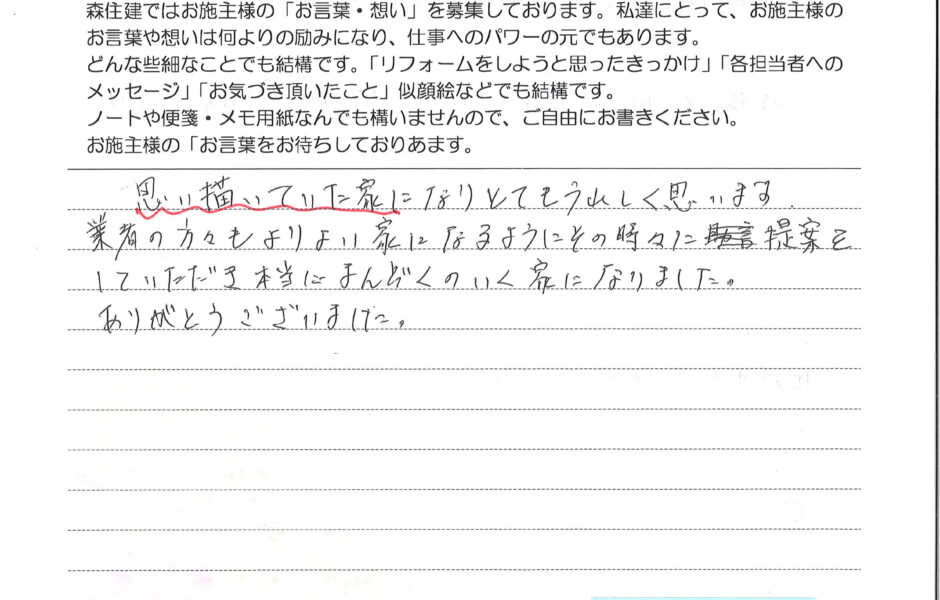 森住建ではお施主様の「お言葉・想い」を募集しております。私達にとって、お施主様の
お言葉や想いは何よりの励みになり、仕事へのパワーの元でもあります。
どんな些細なことでも結構です。「リフォームをしようと思ったきっかけ」「各担当者への
メッセージ」「お気づき頂いたこと」似顔絵などでも結構です。
ノートや便箋・メモ用紙なんでも構いませんので、ご自由にお書きください。
お施主様の「お言葉をお待ちしておりあます。
思い描いていた家になりとてもうれしく思います.
業者の方々もよりよい家になるようにその時々に提案を
していただき本当にまんぞくのいく家になりました。
ありがとうございました。